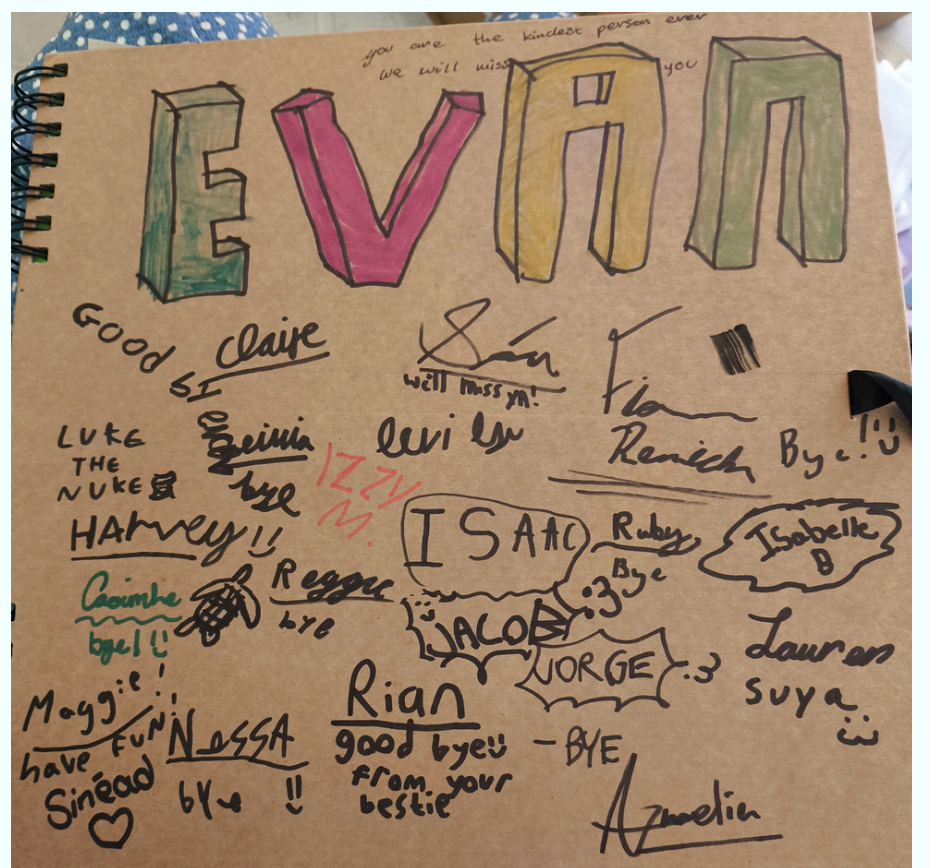 you are the kindest person ever
we will miss you
EVAN
Good
Claire
will miss yn!
LUKE
THE
NUKE
bye
levi
IZZY
M.
Bye!
HArvey!!
ISAAC
Ruby
Bye
Isabelle
B
Caoimhe
bye!
Reggie
bye
JACOB :3
JORGE :3
Lauren
suya
Maggie!
have FUN!
Sinéad
NessA
bye !!
Rian
good bye
from your
bestie
-BYE